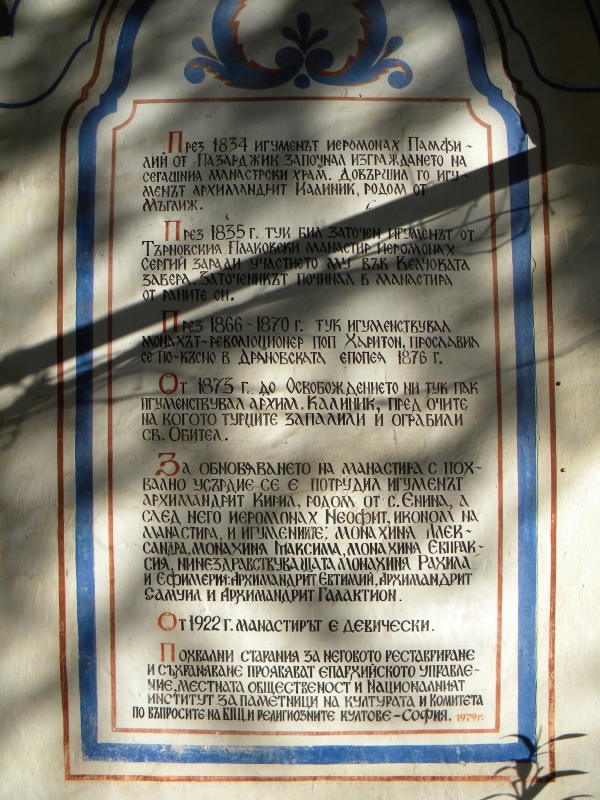 През 1834 игуменът иеромонах Памфи-
лий от Пазарджик започнал изграждането на
сегашния манастрски храм. Довършил го игу-
менът архимандрит Калиник, родом от
Мъглиж.
През 1835 г. тук бил заточен игуменът от
Търновския Плаковски манастир иеромонах
Сергий заради участието му във Велчовата
завера. Заточеникът починал в манастира
от раните си.
През 1866-1870 г. тук игуменствувал
монахът-революционер поп Харитон, прославил
се по-късно в Дряновската епопея 1876 г.
От 1873 г. до Освобождението ни тук пак
игуменствувал архим. Калиник, пред очите
на когото турците запалили и ограбили
св. Обител.
За обновяването на манастира с пох-
вално усърдие се е потрудил игуменът
архимандрит Кирил, родом от с. Енина, а
след него иеромонах Неофит, иконом на
манастира, и игумениите: монахиня Алек-
сандра, монахиня Максима, монахиня Евпрак-
сия, ни нездравствуващата монахиня Рахила
и Ефимерии: Архимандрит Евтимий, Архимандрит
Самуил и Архимандрит Галактион.
От 1922 г. манастирът е девически.
Похвални старания за неговото реставриране
и съхраняване проявяват епархийското управле-
ние, местната общественост и Националният
институт за паметници на културата и Комитета
по въпросите на БПЦ. и религиозните култове - София. 1979 г.